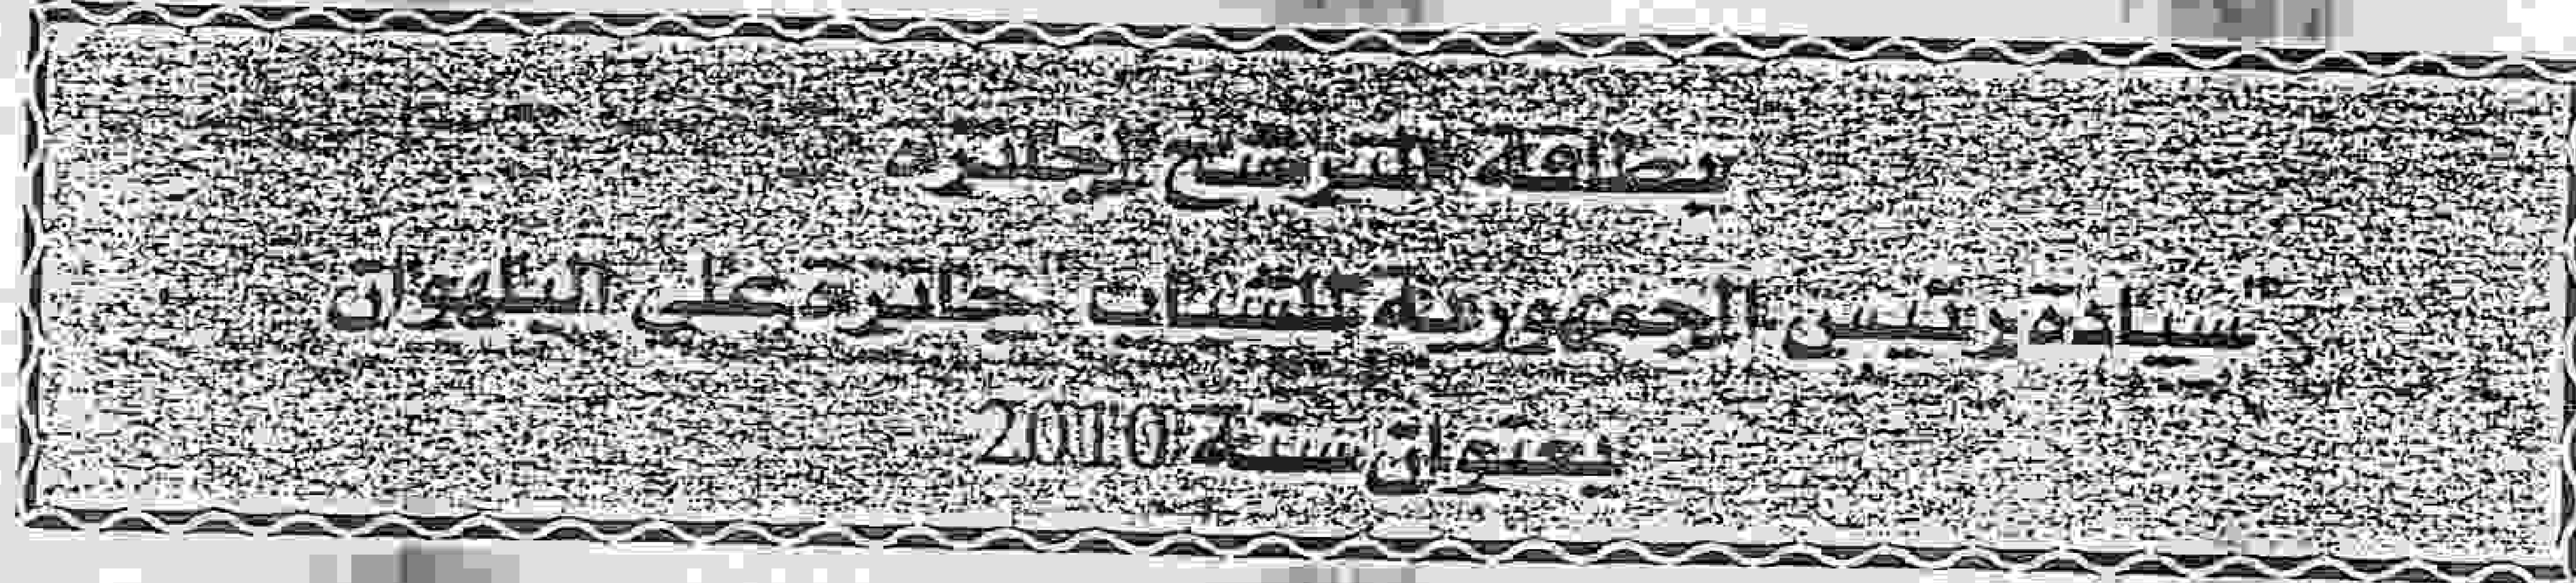 بطاقة الترشح لجائزة
سيادة رئيس الجمهورية للشباب "جائزة علي البلهوان"
بعنوان سنة 2010